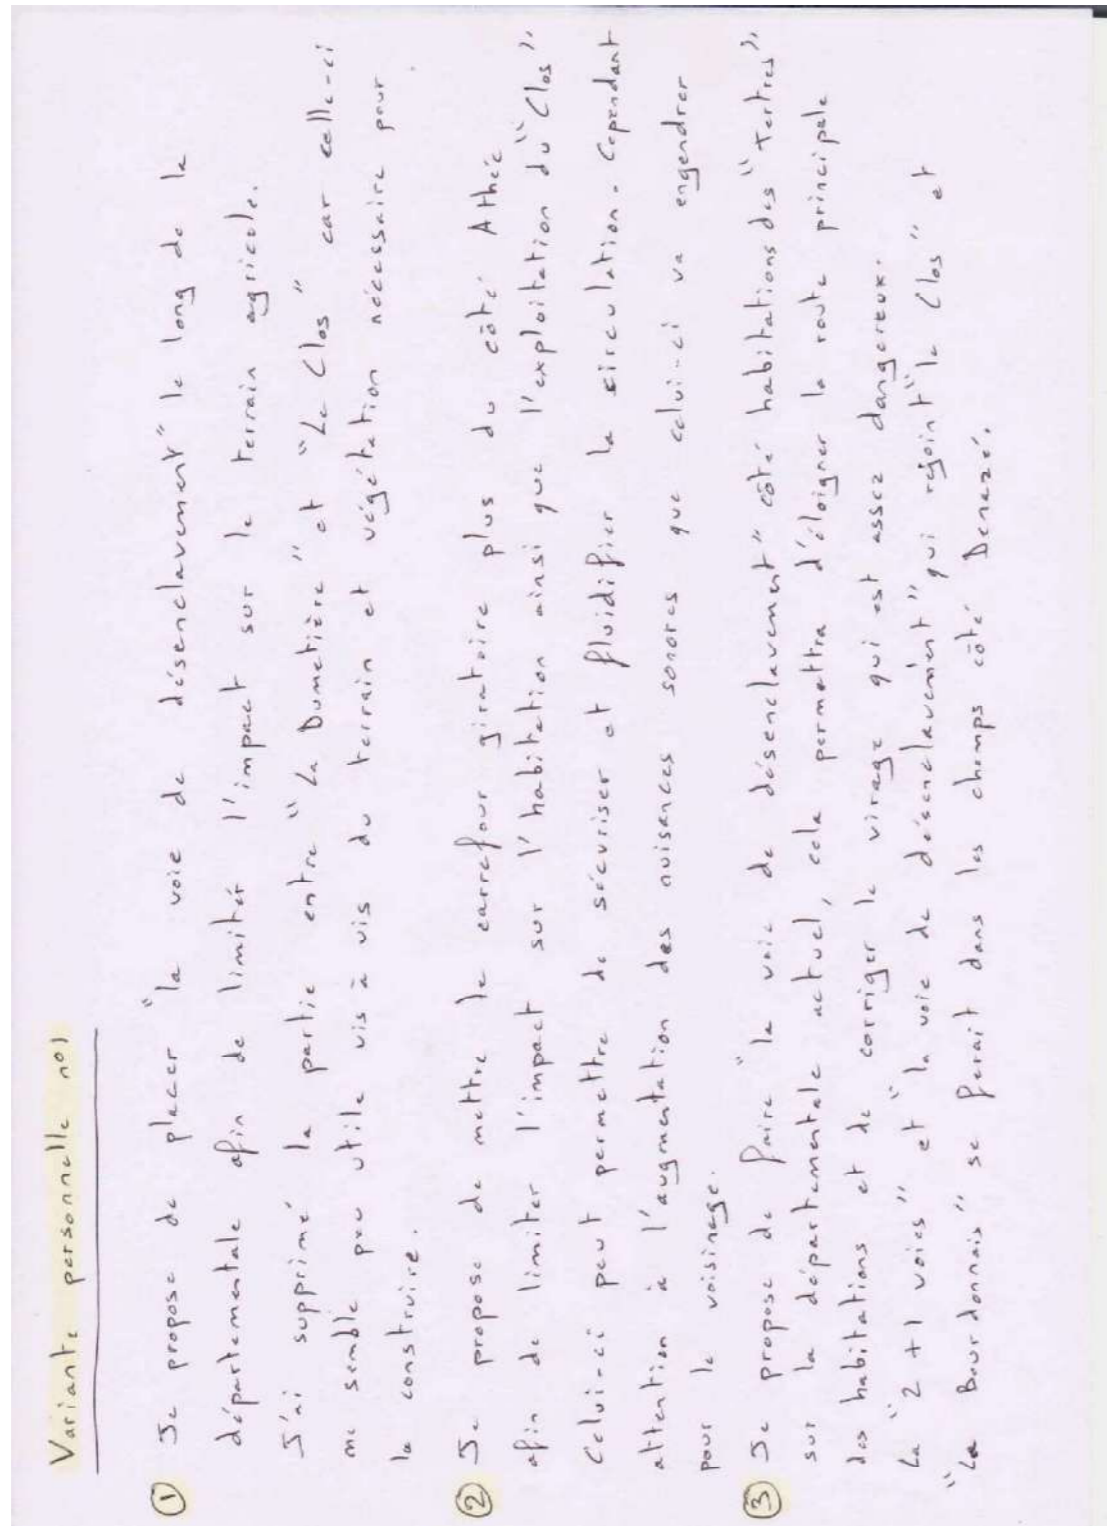 Variante personnelle no1
① Je propose de placer "la voie de désenclavement" le long de la
départementale afin de limiter l'impact sur le terrain agricole.
J'ai supprimé la partie entre "La Dumetière" et "Le Clos" car celle-ci
me semble peu utile vis à vis du terrain et végétation nécessaire pour
la construire.
② Je propose de mettre le carrefour giratoire plus du côté Athée
afin de limiter l'impact sur l'habitation ainsi que l'exploitation du "Clos".
Celui-ci peut permettre de sécuriser et fluidifier la circulation. Cependant
attention à l'augmentation des nuisances sonores que celui-ci va engendrer
pour le voisinage.
③ Je propose de faire "la voie de désenclavement" côté habitations des "Tertres",
sur la départementale actuel, cela permettra d'éloigner la route principale
des habitations et de corriger le virage qui est assez dangereux.
La "2+1 voies" et "la voie de désenclavement" qui rejoint "le Clos" et
"La Bourdonnais" se ferait dans les champs côté Denazé.